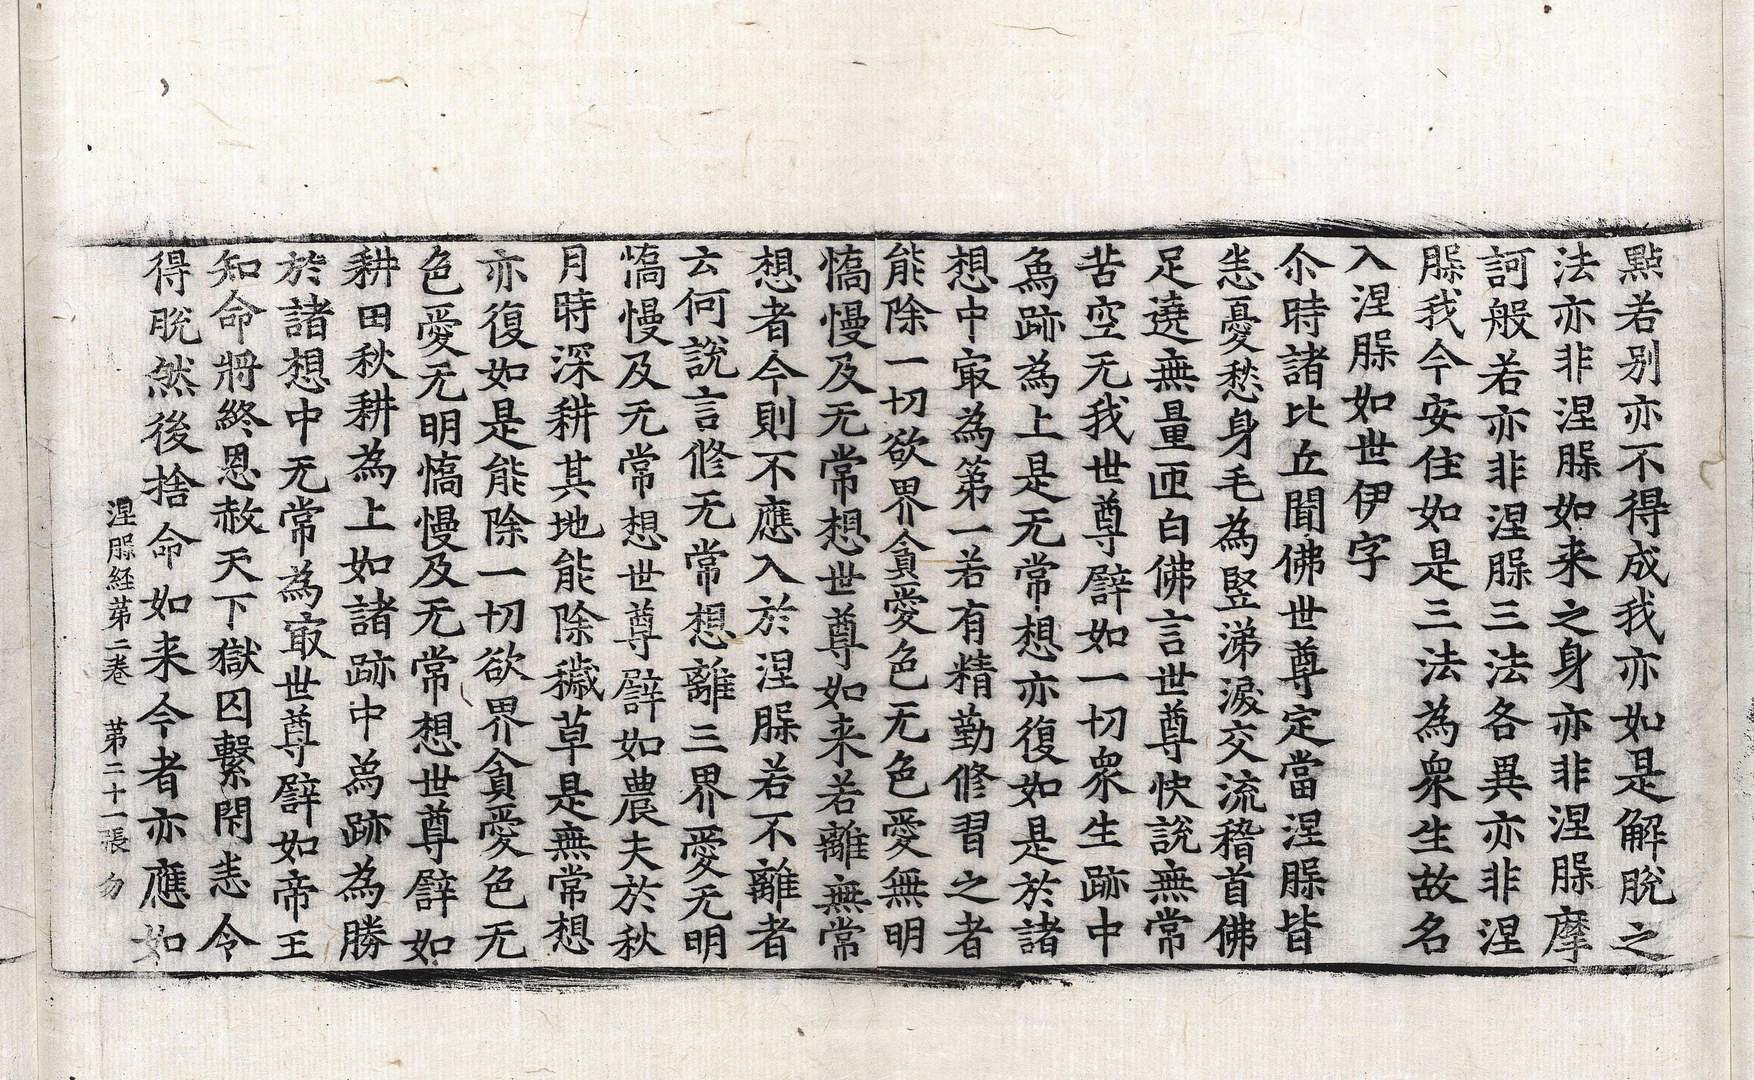 點若别亦不得成我亦如是解脫之
法亦非涅槃如来之身亦非涅槃摩
訶般若亦非涅槃三法各異亦非涅
槃我今安住如是三法為衆生故名
入涅槃如世伊字
尒時諸比丘聞佛世尊定當涅槃皆
恙憂愁身毛為竪涕淚交流稽首佛
足遶無量匝白佛言世尊快說無常
苦空无我世尊譬如一切衆生跡中
為跡為上是无常想亦復如是於諸
想中㝡為第一若有精勤修習之者
能除一切欲界貪愛色无色愛無明
憍慢及无常想世尊如来若離無常
想者今則不應入於涅槃若不離者
云何說言修无常想離三界愛无明
憍慢及无常想世尊譬如農夫於秋
月時深耕其地能除穢草是無常想
亦復如是能除一切欲界貪愛色无
色愛无明憍慢及无常想世尊譬如
耕田秋耕為上如諸跡中為跡為勝
於諸想中无常為㝡世尊譬如帝王
知命將終恩赦天下獄囚繫閇恙令
得脫然後捨命如来今者亦應如
涅槃経第二卷 第二十一張 勿